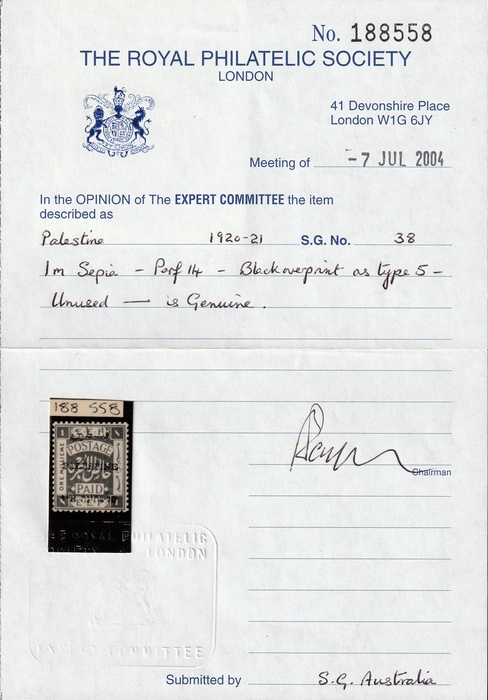 No. 188558
THE ROYAL PHILATELIC SOCIETY
LONDON
41 Devonshire Place
London W1G 6JY
Meeting of -7 JUL 2004
In the OPINION of The EXPERT COMMITTEE the item
described as
Palestine 1920-21 S.G. No. 38
1m Sepia - Perf 14 - Black overprint as type 5 -
Unused — is Genuine.
188 558
E.E.F.
POSTAGE
ONE MILLIEME
PALESTINE
PAID
Chairman
ROYAL PHILATELIC
LONDON
EXPERT COMMITTEE
Submitted by S.G. Australia